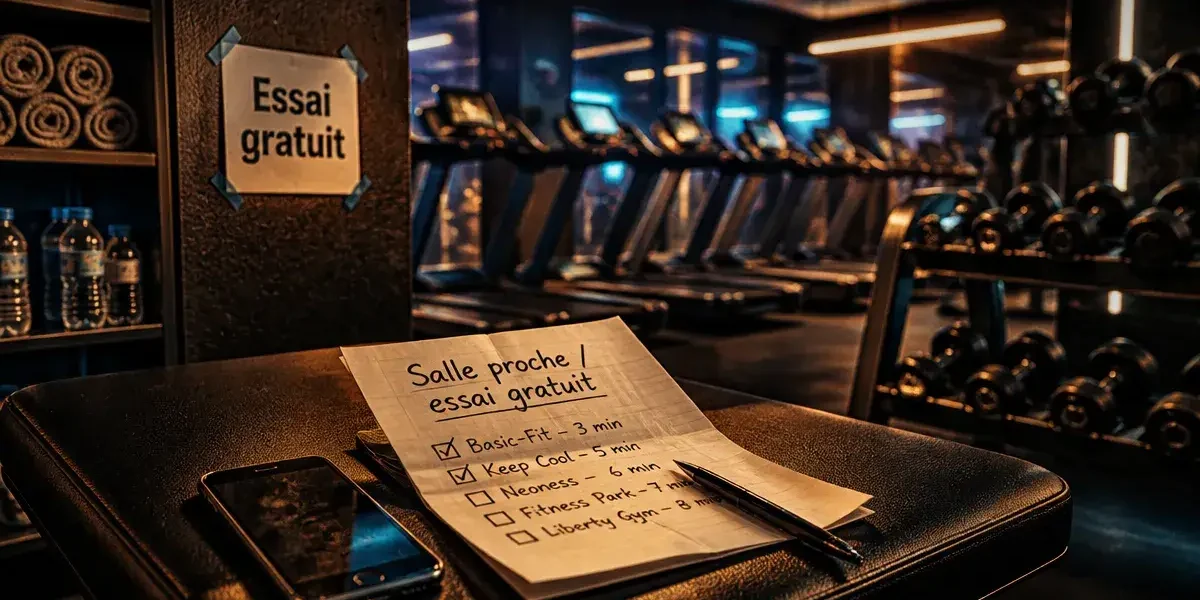 Essai
gratuit
Salle proche /
essai gratuit
Basic-Fit – 3 min
Keep Cool – 5 min
Neoness – 6 min
Fitness Park – 7 min
Liberty Gym – 8 min